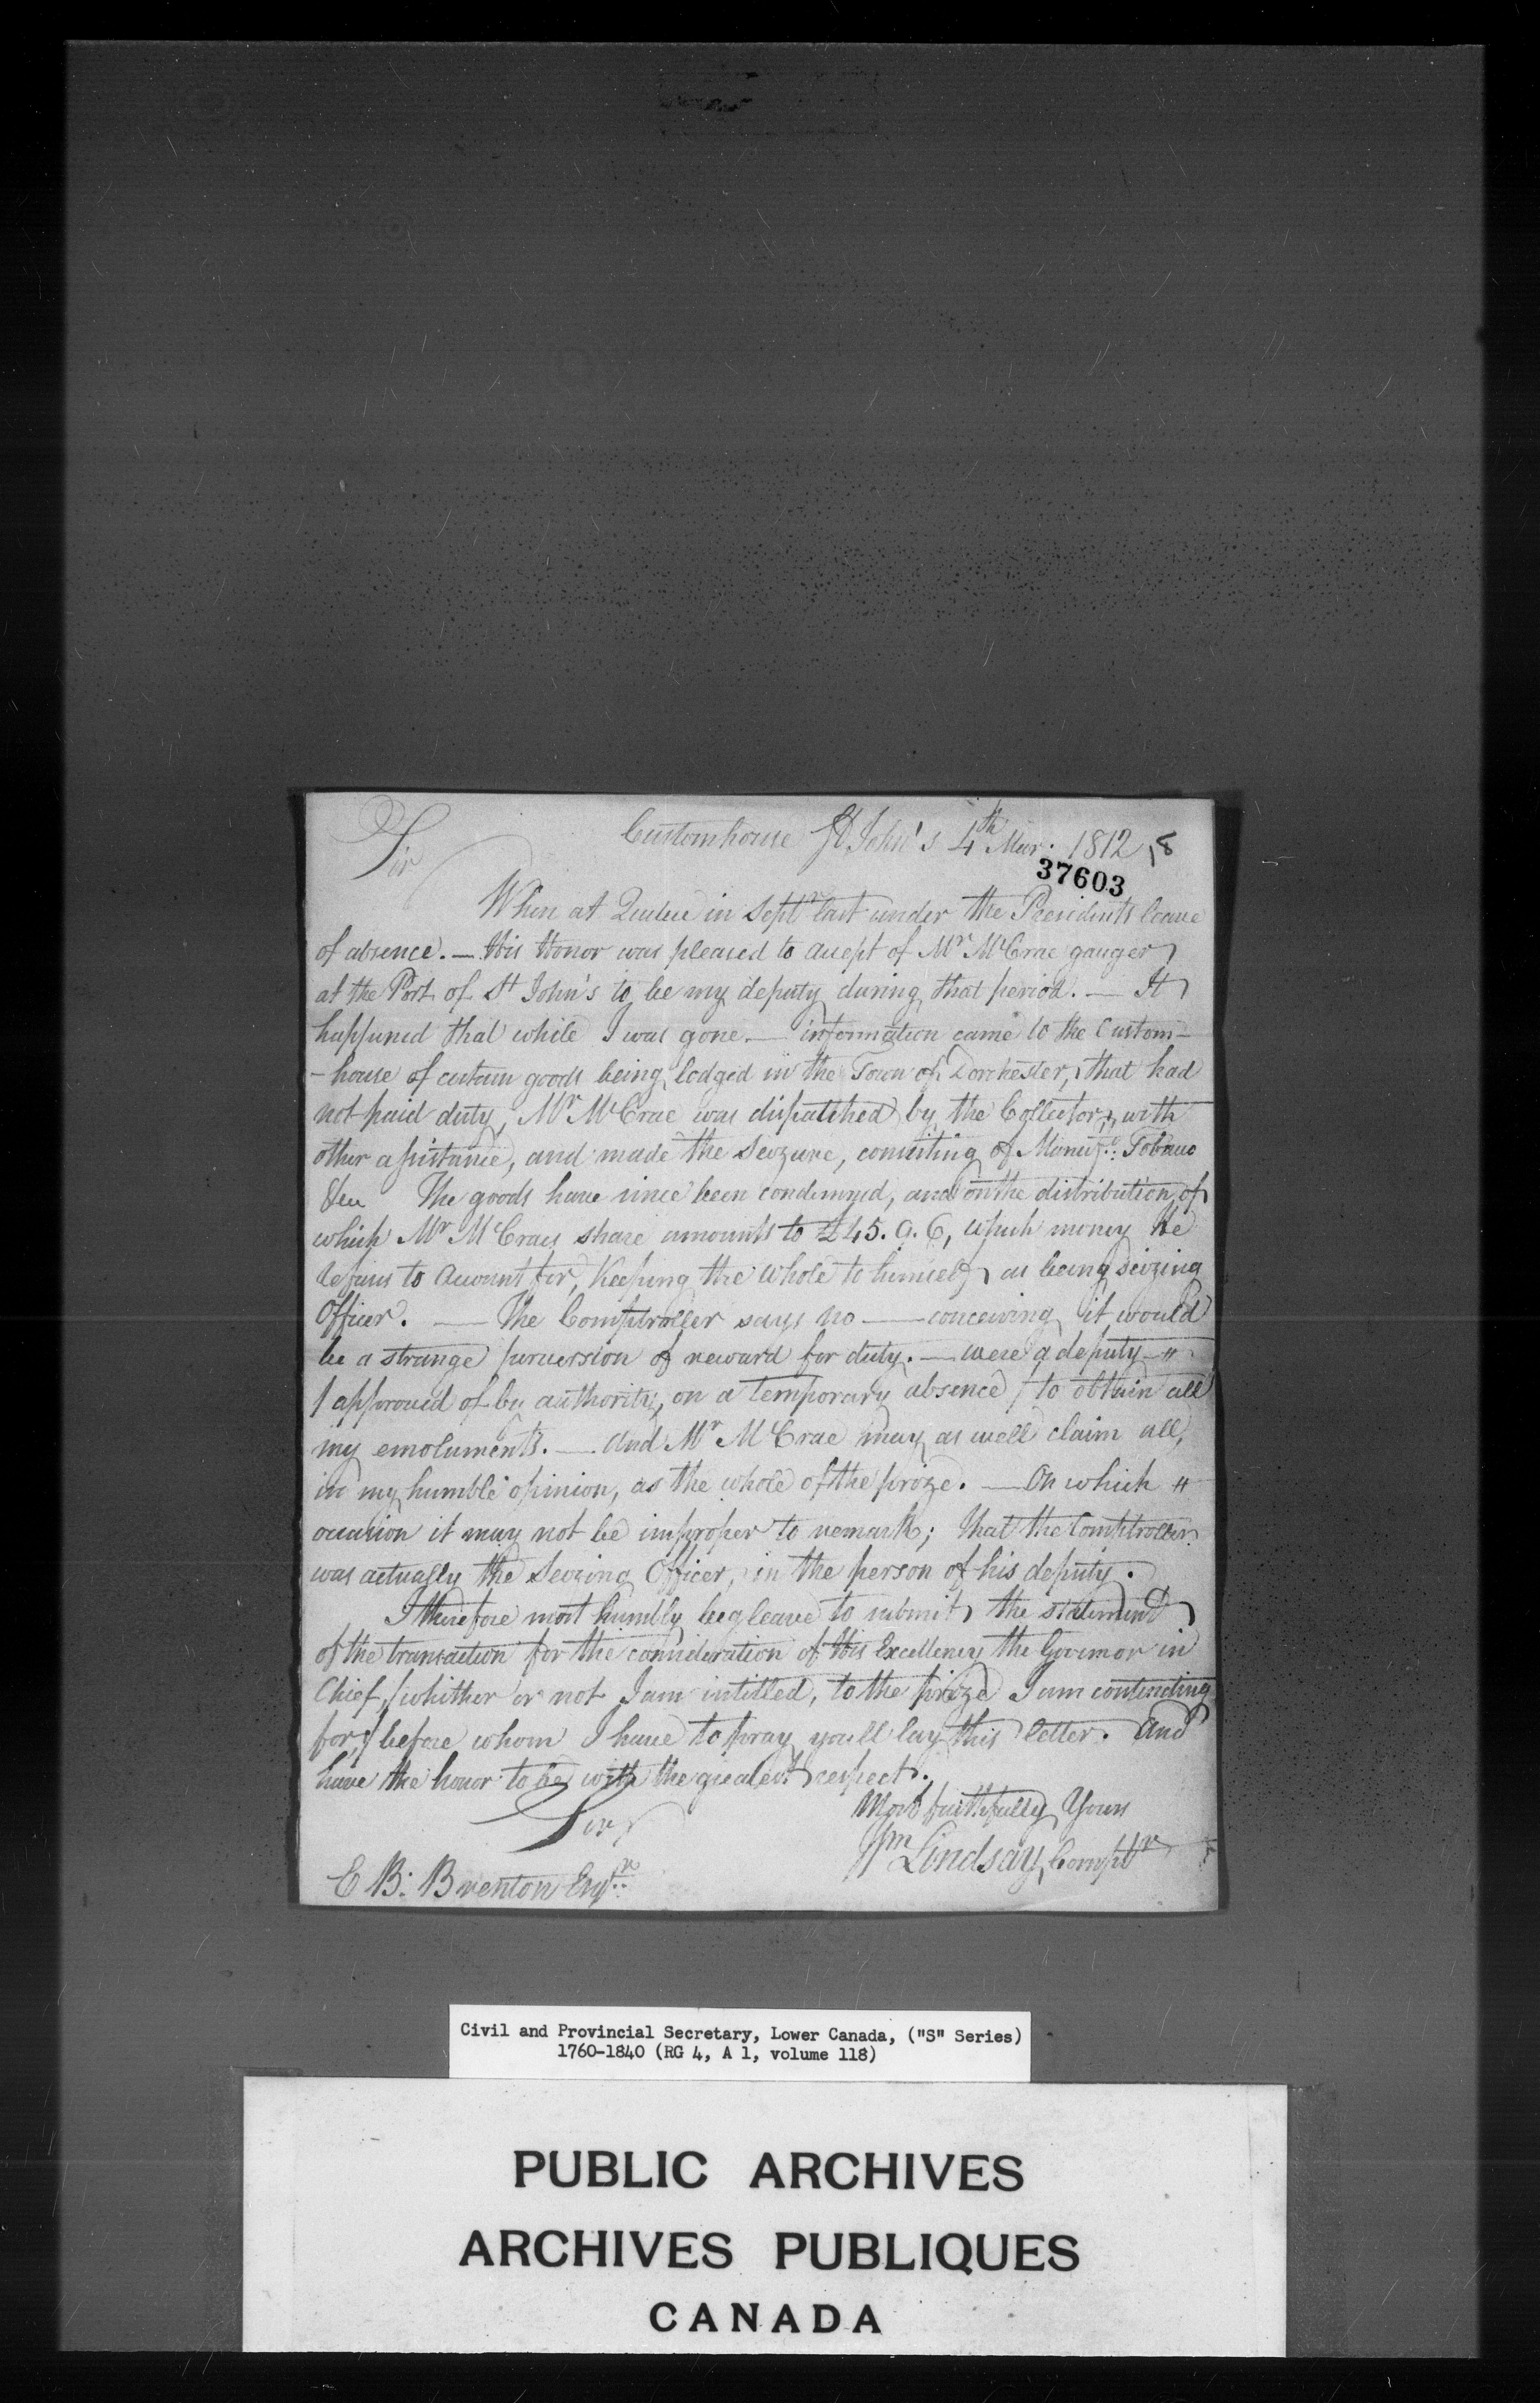 Customhouse St John's 4th Mar. 1812
Sir
37603
When at Quebec in Septr last under the Presidents leave
of absence. — His Honor was pleased to accept of Mr McCrae gauger
at the Port of St John's to be my deputy during that period. — It
happened that while I was gone. — information came to the Custom-
-house of certain goods being lodged in the Town of Dorchester, that had
not paid duty, Mr McCrae was dispatched by the Collector, with
other assistance, and made the Seizure, consisting of Manufd: Tobacco
&ca The goods have since been condemned, and on the distribution of
which Mr McCraes share amounts to £45. 0. 6, which money He
refuses to Account for, Keeping the Whole to himself, as being seizing
Officer. — The Comptroller says no — conceiving it would
be a strange perversion of reward for duty. — were a deputy "
/ approved of by authority, on a temporary absence / to obtain all
my emoluments. — And Mr McCrae may as well claim all,
in my humble opinion, as the whole of the prize. — On which "
occasion it may not be improper to remark; that the Comptroller
was actually the Seizing Officer, in the person of his deputy.
I therefore most humbly beg leave to submit, the statement
of the transaction for the consideration of His Excellency the Governor in
Chief, / whither or not I am intitled, to the prize I am contending
for, / before whom I have to pray you'll lay this letter. And
have the honor to be with the greatest respect.
Sir,
Most faithfully Yours
Wm Lindsay, Comptr
E B: Brenton Esqr:
Civil and Provincial Secretary, Lower Canada, ("S" Series)
1760-1840 (RG 4, A 1, volume 118)
PUBLIC ARCHIVES
ARCHIVES PUBLIQUES
CANADA